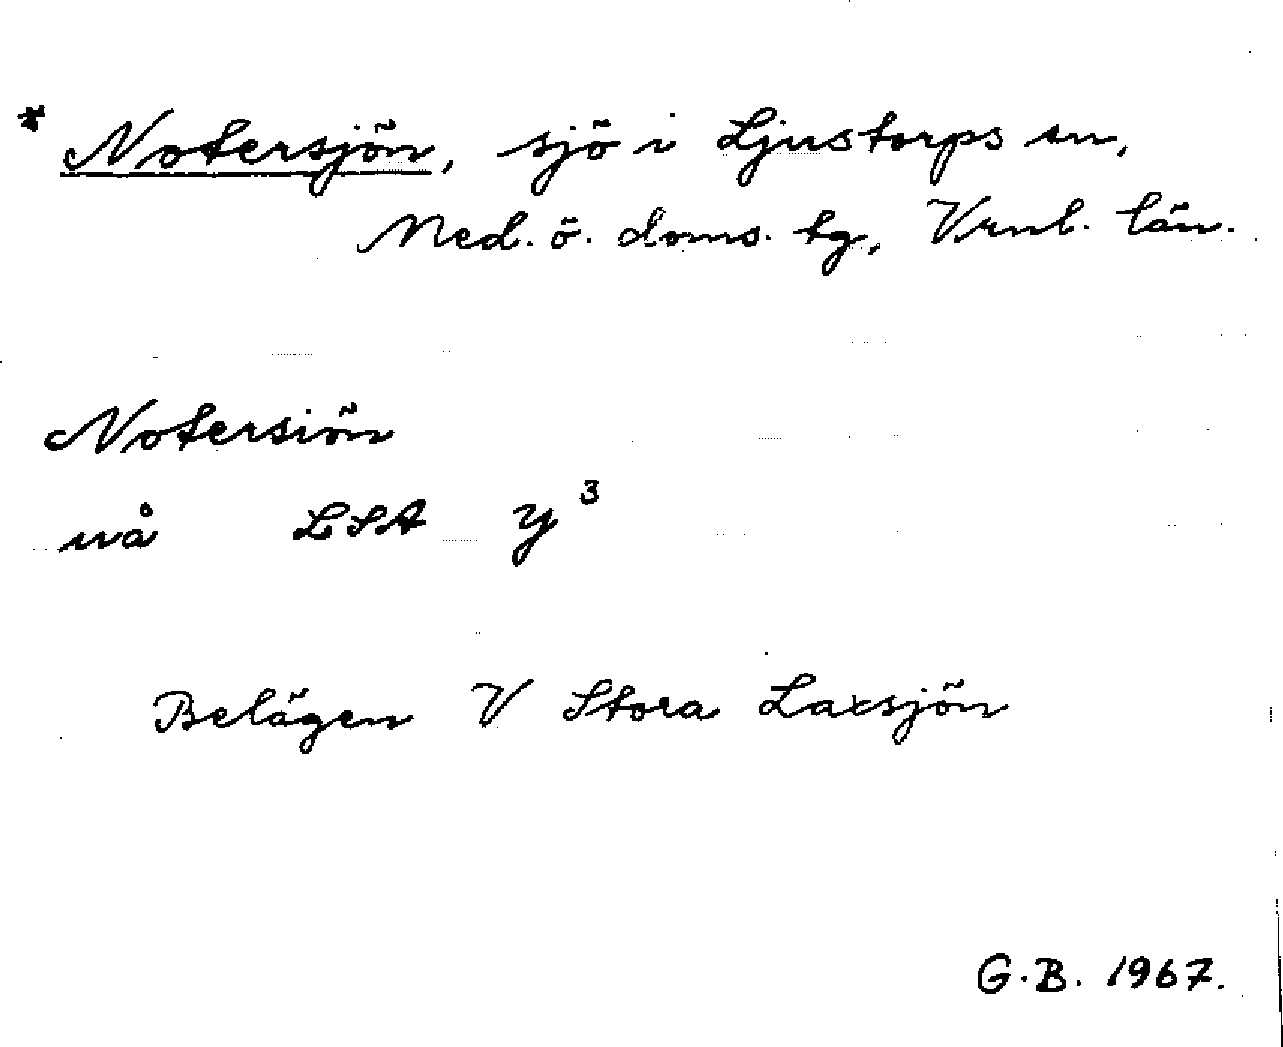 * Notersjön, sjö i Ljustorps sn,
Med. ö. doms. tg, Vrnl. län.
Notersiön
uå LSA y³
Belägen V Stora Laxsjön
G.B. 1967.